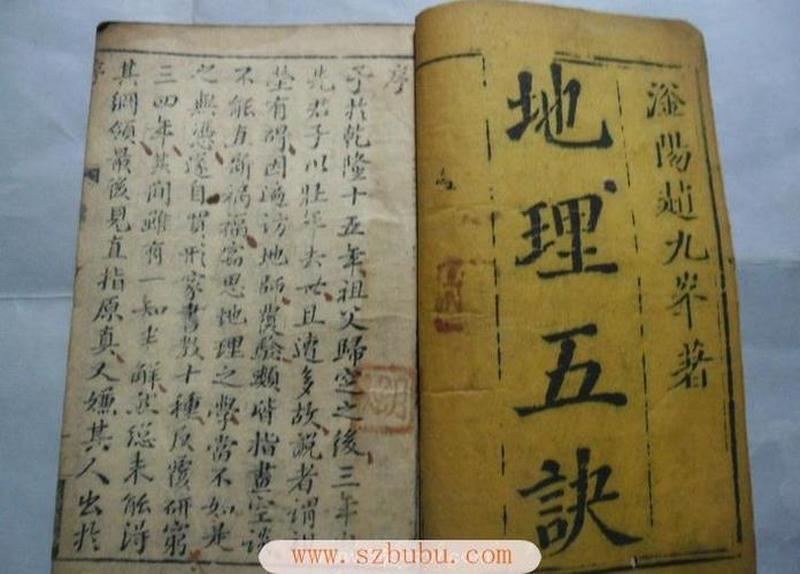 滏陽趙九峯著
地理五訣
序
予扵乾隆十五年祖父歸窆之後三年
先君子以壯年去世且遭多故說者謂祖
塋有碍因遍访地師覆驗類皆指畫空談
不能直斷禍福窃思地理之學當不如是
之無憑遂自買形家書数十種反覆研窮
三四年其間雖有一知半解然総未能得
其綱領最後見直指原真又嫌其人出扵
www.szbubu.com